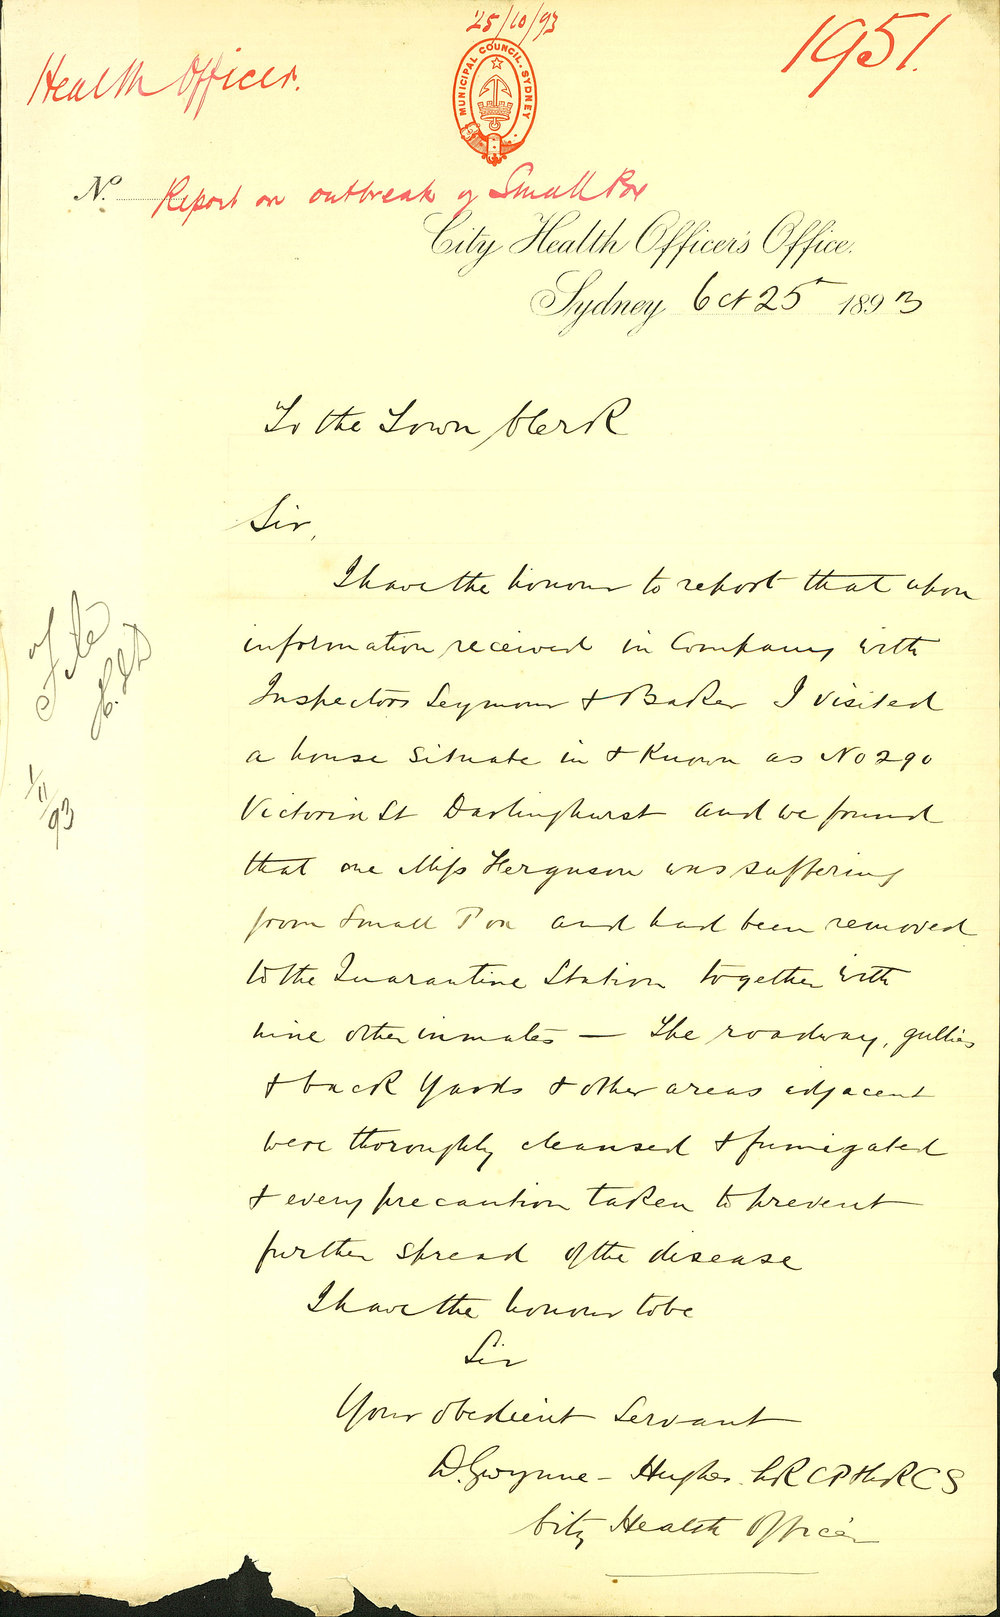 25/10/93
1951.
Health Officer.
MUNICIPAL COUNCIL·SYDNEY
No. Report on outbreak of Small Pox
City Health Officer's Office.
Sydney Oct 25th 1893
To the Town Clerk
Sir,
I have the honour to report that upon
information received in Company with
Inspectors Seymour & Baker I visited
a house situate in & Known as No 290
Victoria St Darlinghurst and we found
that one Miss Ferguson was suffering
from Small Pox and had been removed
to the Quarantine Station together with
nine other inmates — The roadway, gullies
& back Yards & other areas adjacent
were thoroughly cleansed & fumigated
& every precaution taken to prevent
further spread of the disease
I have the honour to be
Sir
Your obedient Servant
D. Gwynne-Hughes. LRCP MRCS
City Health Officer
File
1/11/93